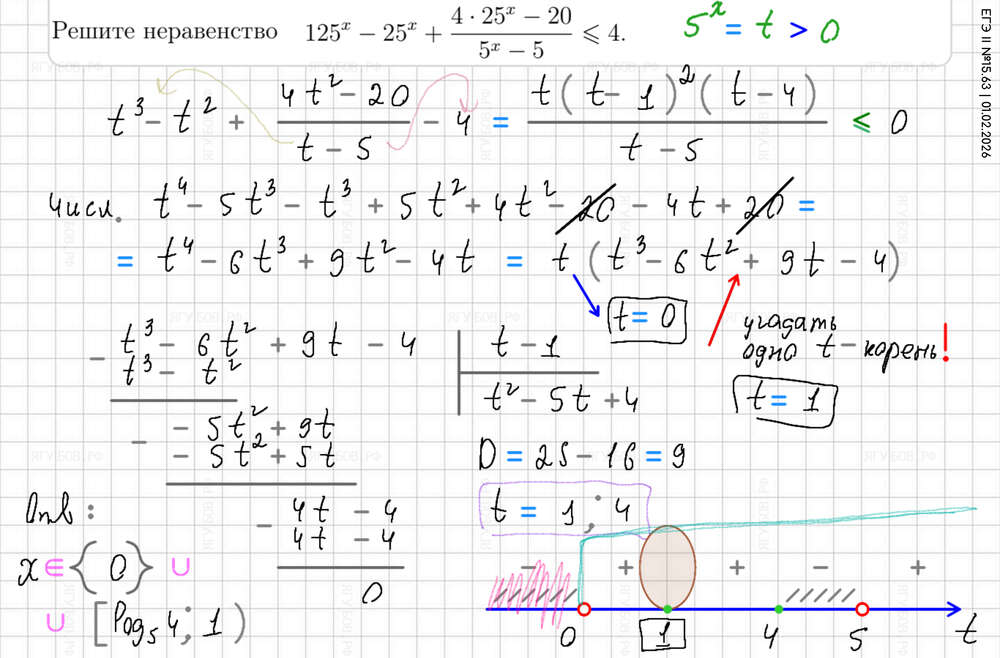 Решите неравенство 125^x − 25^x + (4 · 25^x − 20)/(5^x − 5) ⩽ 4.
5^x = t > 0
ЕГЭ II №15.63 | 01.02.2026
t^3 − t^2 + (4t^2 − 20)/(t − 5) − 4 = (t(t − 1)^2(t − 4))/(t − 5) ⩽ 0
числ. t^4 − 5t^3 − t^3 + 5t^2 + 4t^2 − 20 − 4t + 20 =
= t^4 − 6t^3 + 9t^2 − 4t = t(t^3 − 6t^2 + 9t − 4)
t = 0
угадать
одно t − корень!
t = 1
− t^3 − 6t^2 + 9t − 4 | t − 1
t^3 − t^2
t^2 − 5t + 4
− − 5t^2 + 9t
− 5t^2 + 5t
− 4t − 4
4t − 4
0
D = 25 − 16 = 9
t = 1; 4
− + + − +
0 1 4 5 t
Отв:
x ∈ {0} ∪
∪ [log_5 4; 1)
ЯГУБОВ.РФ